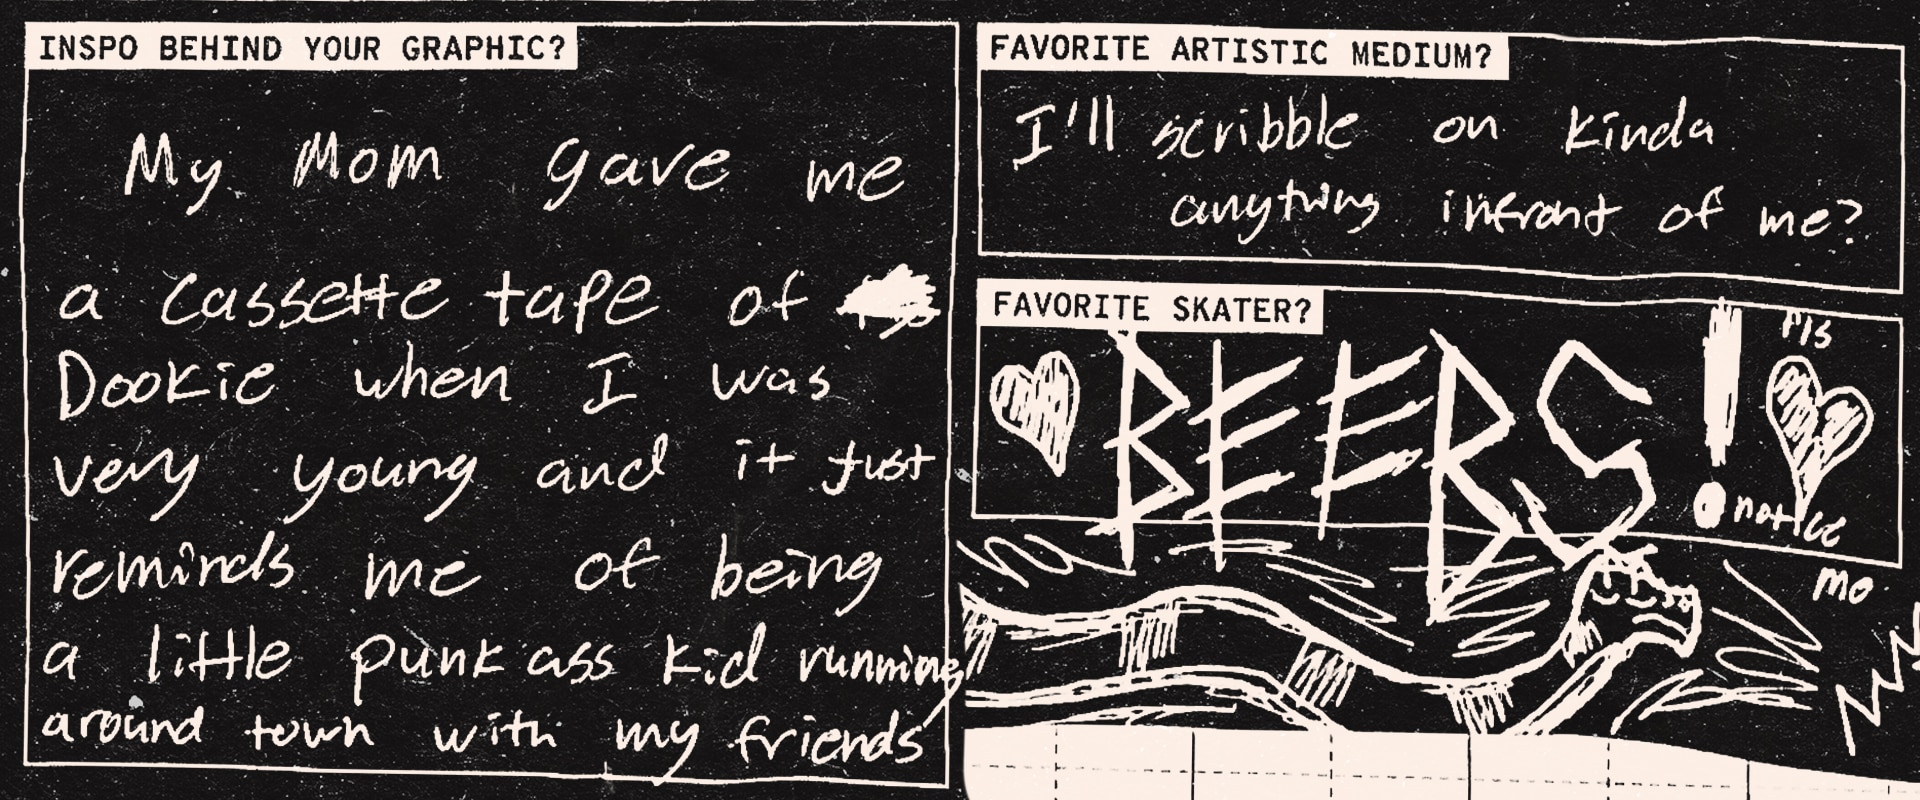 INSPO BEHIND YOUR GRAPHIC?
My Mom gave me
a cassette tape of
Dookie when I was
very young and it just
reminds me of being
a little punk ass kid running
around town with my friends
FAVORITE ARTISTIC MEDIUM?
I'll scribble on kinda
anything infront of me?
FAVORITE SKATER?
BEERS!
pls
notice
me